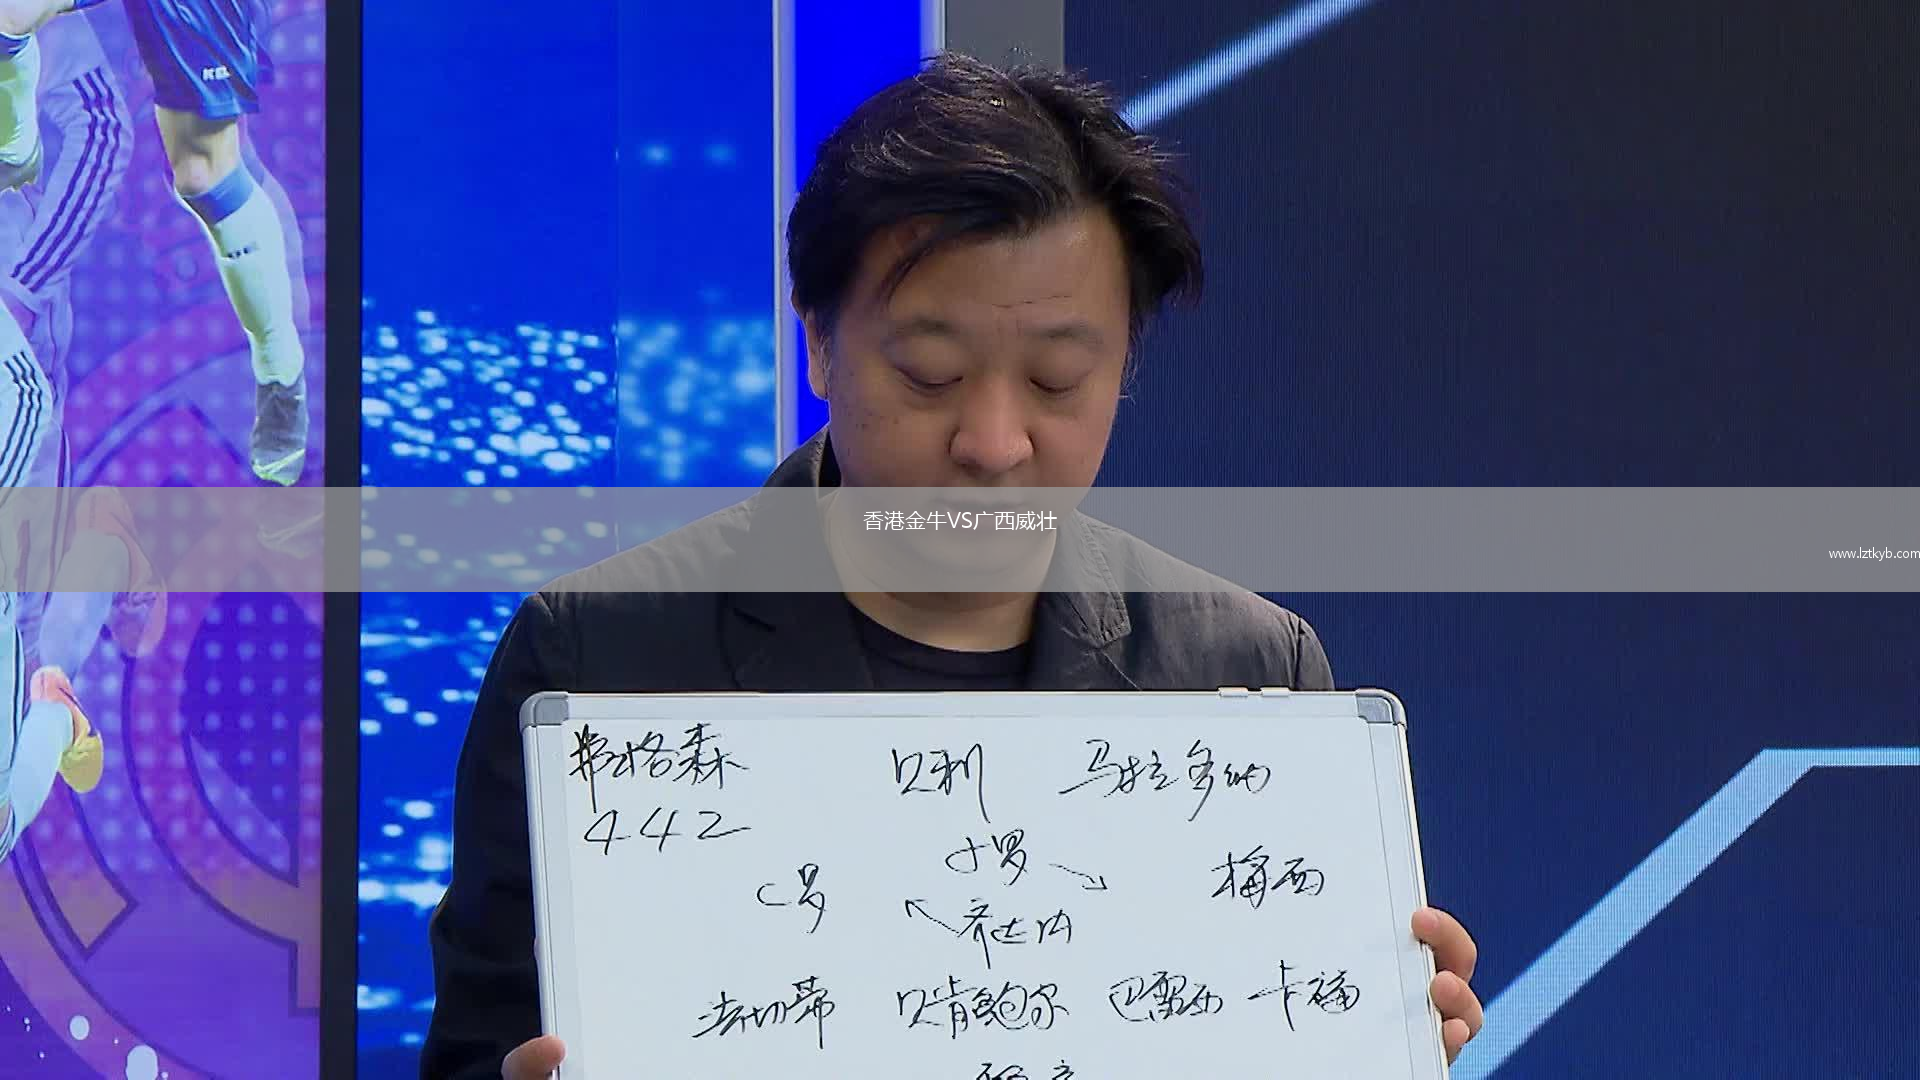 香港金牛VS广西威壮
www.lztkyb.com
弗格森 贝利 马拉多纳
442
小罗
C罗 梅西
齐达内
法切蒂 贝肯鲍尔 巴雷西 卡福